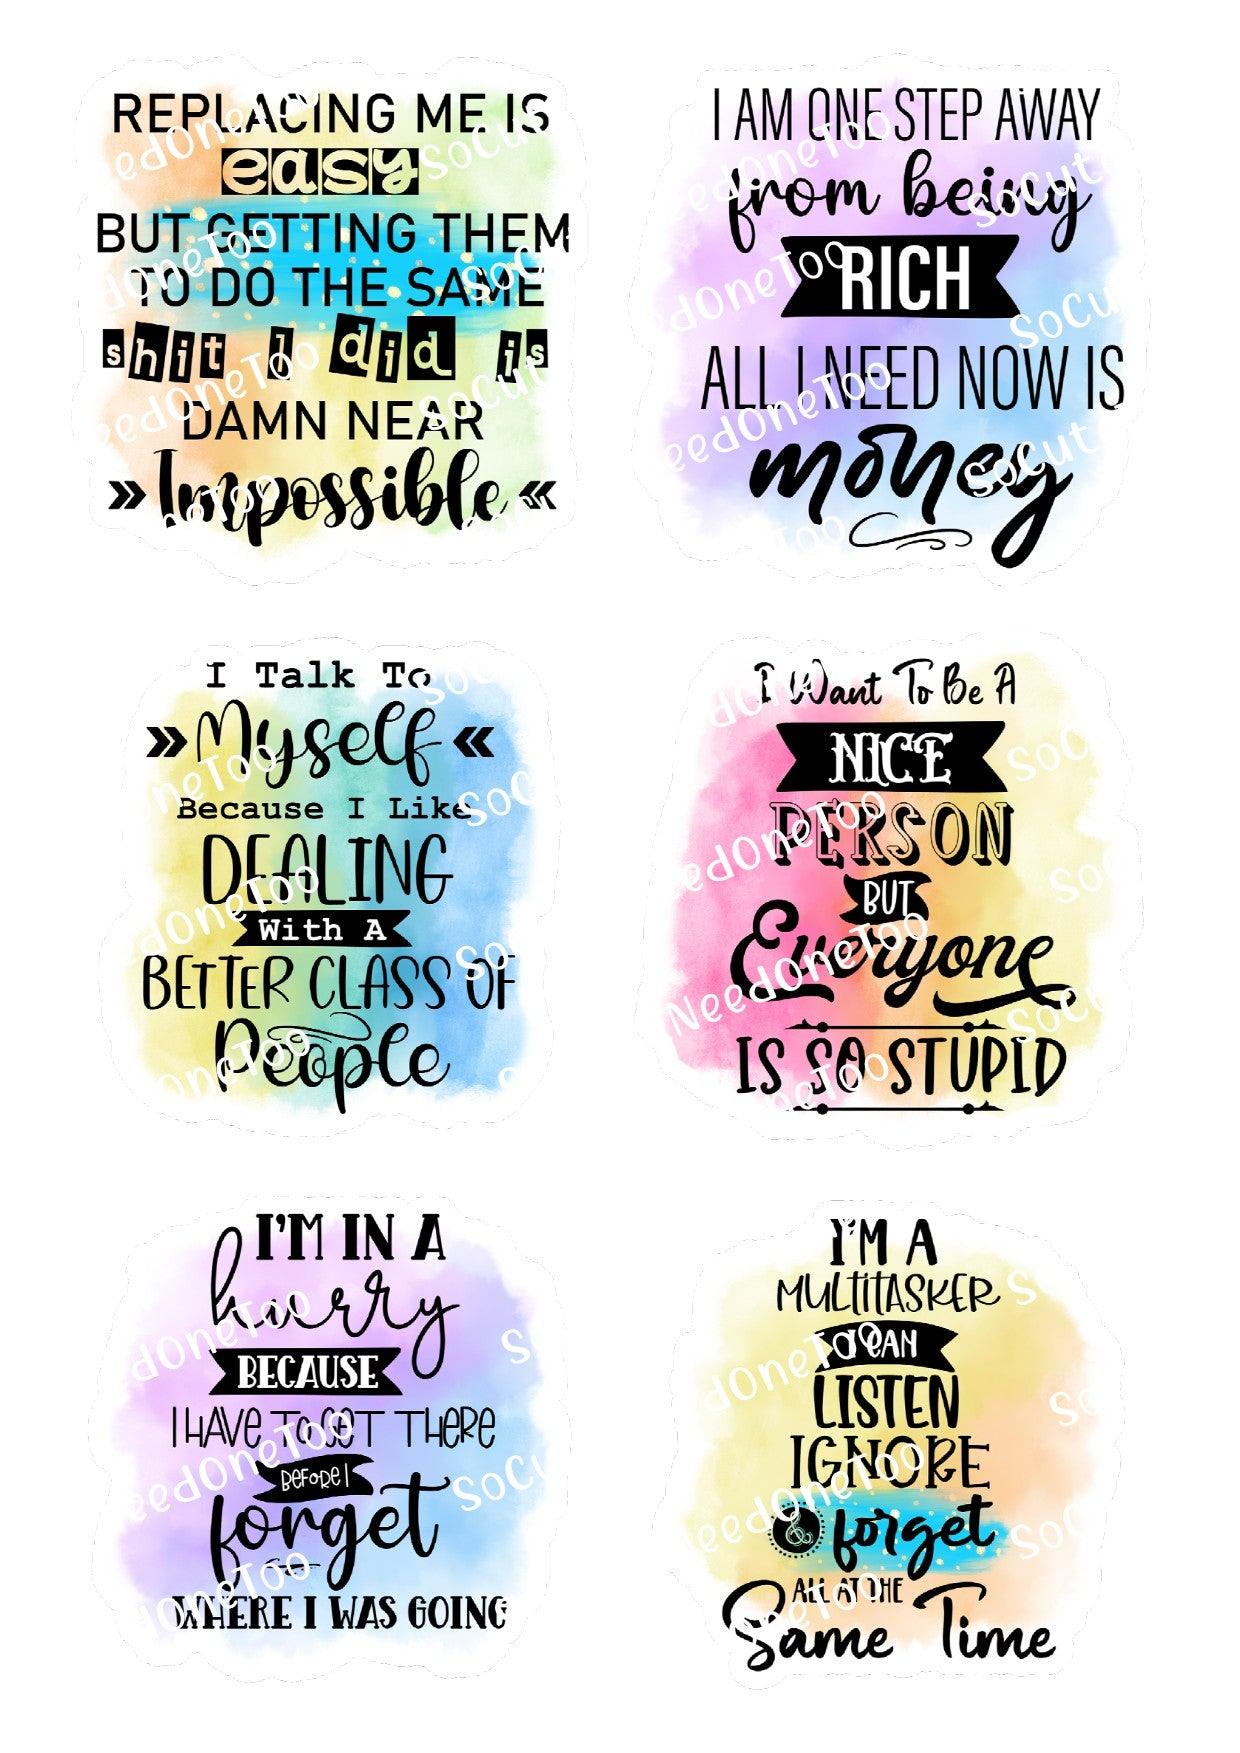 REPLACING ME IS
easy
BUT GETTING THEM
TO DO THE SAME
shit I did is
DAMN NEAR
» Impossible «
I AM ONE STEP AWAY
from being
RICH
ALL I NEED NOW IS
money
I Talk To
» Myself «
Because I Like
DEALING
With A
BETTER CLASS OF
People
I Want To Be A
NICE
PERSON
BUT
Everyone
IS SO STUPID
I'M IN A
hurry
BECAUSE
I HAVE TO GET THERE
BEFORE I
forget
WHERE I WAS GOING
I'M A
MULTITASKER
I CAN
LISTEN
IGNORE
& forget
ALL AT THE
Same Time
NeedOneToo
SoCut